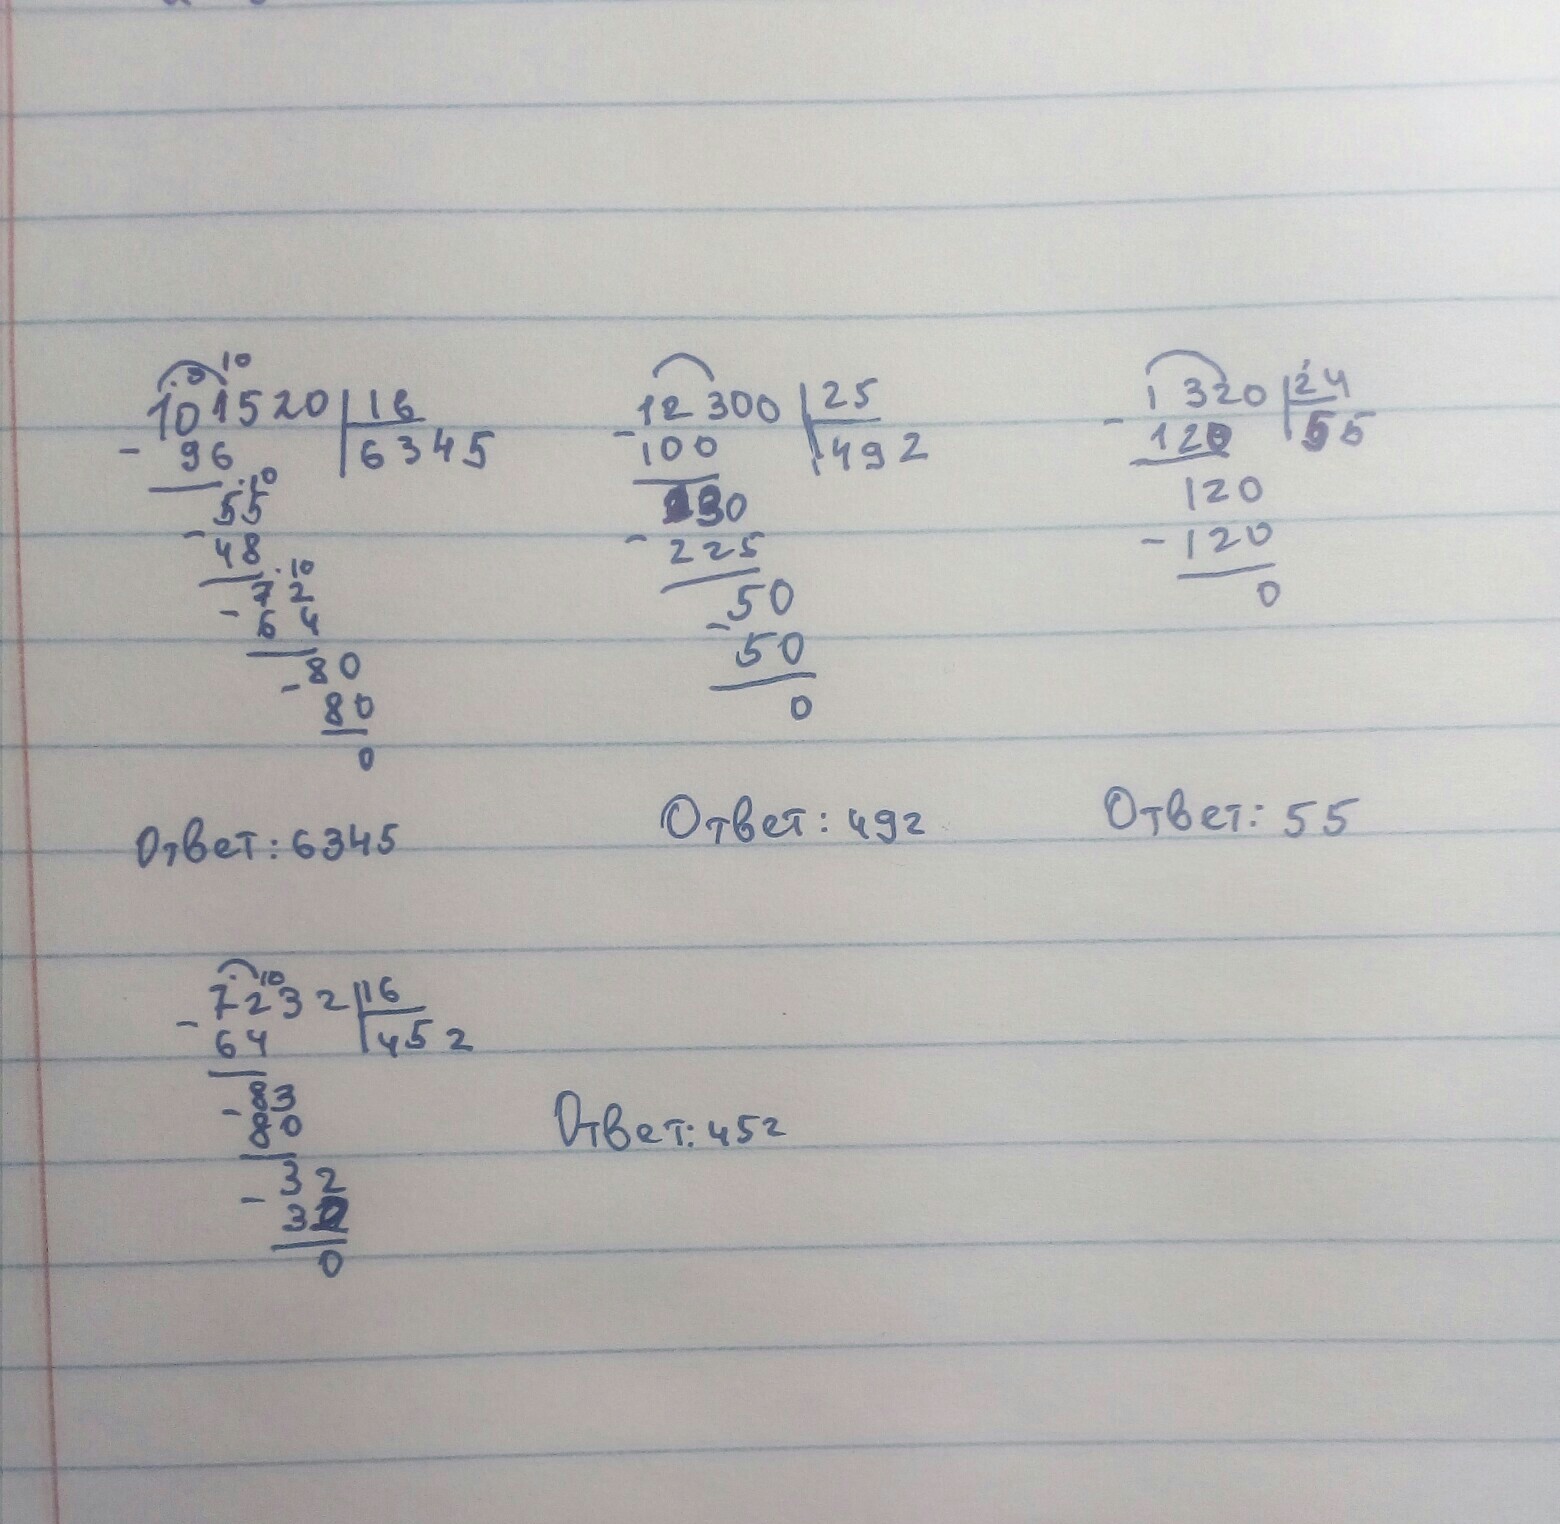 101520 | 16
- 96 6345
55
- 48
72
- 64
80
- 80
0
Ответ: 6345
12300 | 25
- 100 492
230
- 225
50
- 50
0
Ответ: 492
1320 | 24
- 120 55
120
- 120
0
Ответ: 55
7232 | 16
- 64 452
83
- 80
32
- 32
0
Ответ: 452